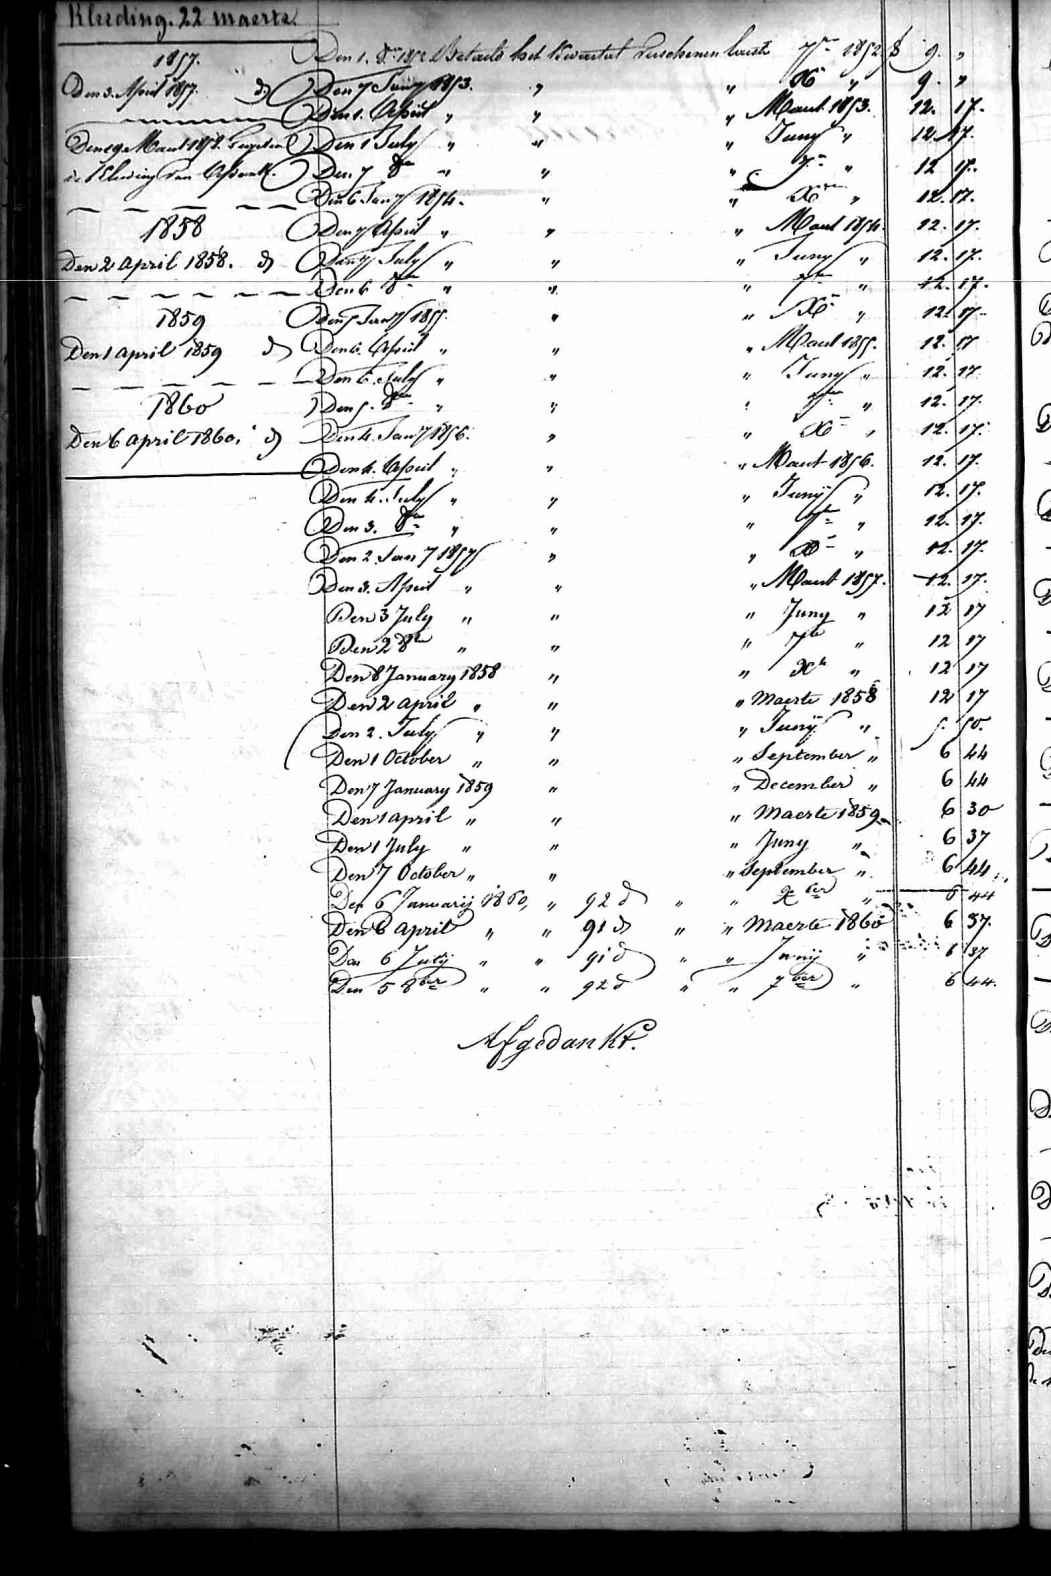 Kleeding. 22 maerte
1857.
Den 3. April 1857. d
Den 29 Maart 1858.
de Kleeding van
1858
Den 2 april 1858. d
1859
Den 1 april 1859 d
1860
Den 6 april 1860. d
Den 1. 8er 1852 Betaeld het Kwartael verschenen 7er 1852 9. "
Den 7 Jany 1853. " " Xer " 9. "
Den 1. April " " " Maart 1853. 12. 17.
Den 1 July " " " Juny " 12. 17.
Den 7 8er " " " 7er " 12 17.
Den 6 Jany 1854. " " Xer " 12. 17.
Den 7 April " " " Maart 1854. 12. 17.
Den 7 July " " " Juny " 12. 17.
Den 6 8er " " " 7er " 12. 17.
Den 5 Jany 1855. " " Xer " 12. 17.
Den 6. April " " " Maart 1855. 12. 17
Den 6. July " " " Juny " 12. 17
Den 5. 8er " " " 7er " 12. 17.
Den 4. Jany 1856. " " Xer " 12. 17.
Den 4. April " " " Maart 1856. 12. 17.
Den 4. July " " " Junij " 12. 17.
Den 3. 8er " " " 7er " 12. 17.
Den 2. Jan 7 1857 " " Xer " 12. 17.
Den 3. April " " " Maart 1857. 12. 17.
Den 3 July " " " Juny " 12 17
Den 2 8er " " " 7er " 12 17
Den 8 January 1858 " " Xr " 12 17
Den 2 april " " " Maerte 1858 12 17
Den 2. July " " " Junij " 5. 50.
Den 1 October " " " September " 6 44
Den 7 January 1859 " " December " 6 44
Den 1 april " " " Maerte 1859 6 30
Den 1 July " " " Juny " 6 37
Den 7 October " " " September " 6 44
Den 6 Januarij 1860, " 92 d " " Xber " 6 44
Den 6 april " " 91 d " " Maerte 1860 6 37.
Den 6 July " " 91 d " " Junij " 6 37
Den 5 8ber " " 92 d " " 7ber " 6 44.
Afgedankt.